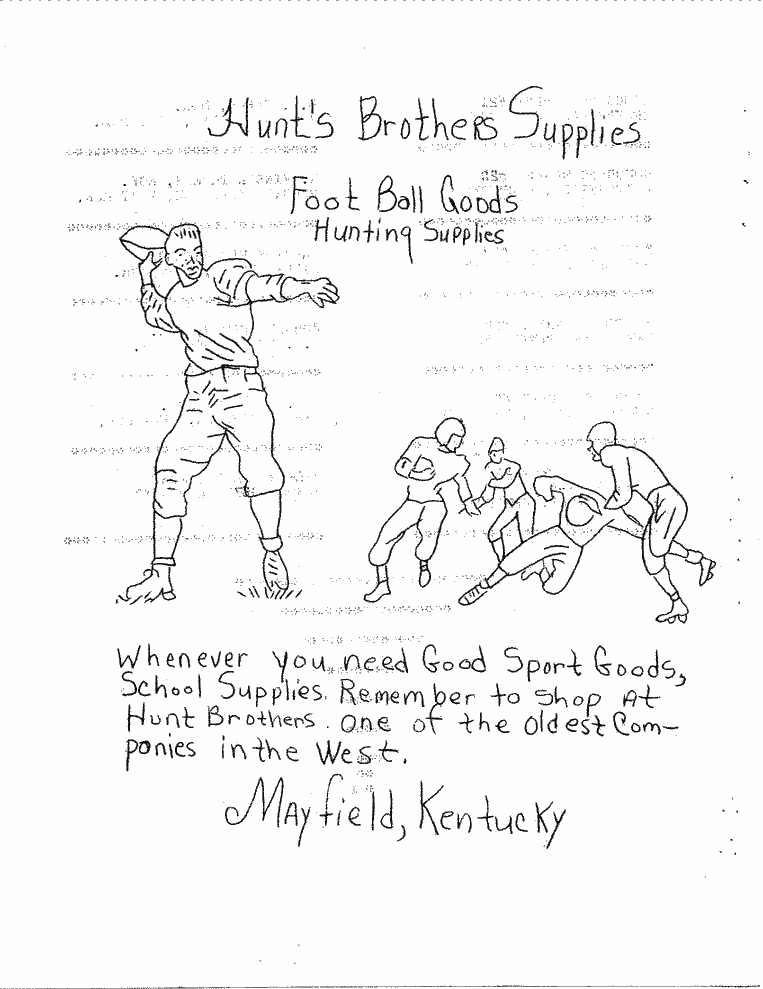 Hunt's Brothers Supplies
Foot Ball Goods
Hunting Supplies
Whenever you need Good Sport Goods,
School Supplies. Remember to shop At
Hunt Brothers. One of the oldest Com-
ponies in the West.
Mayfield, Kentucky